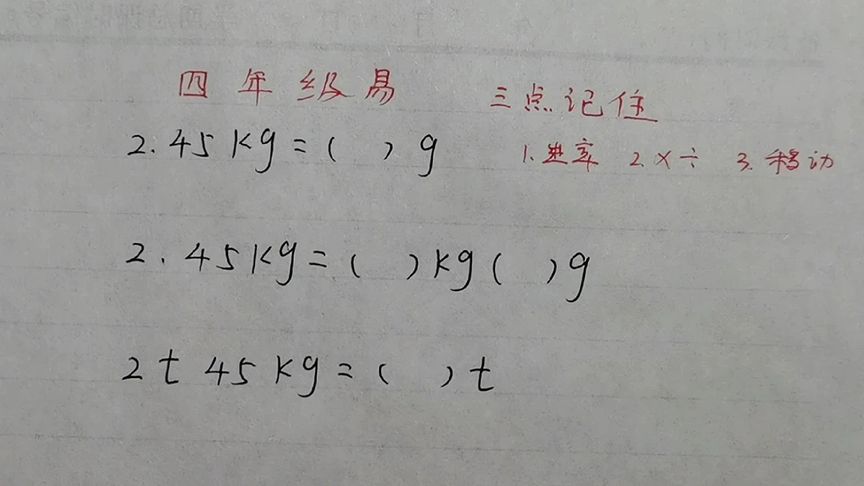 四年级易 三点记住
2.45kg=( )g 1.进率 2.×÷ 3.移动
2.45kg=( )kg( )g
2t 45kg=( )t